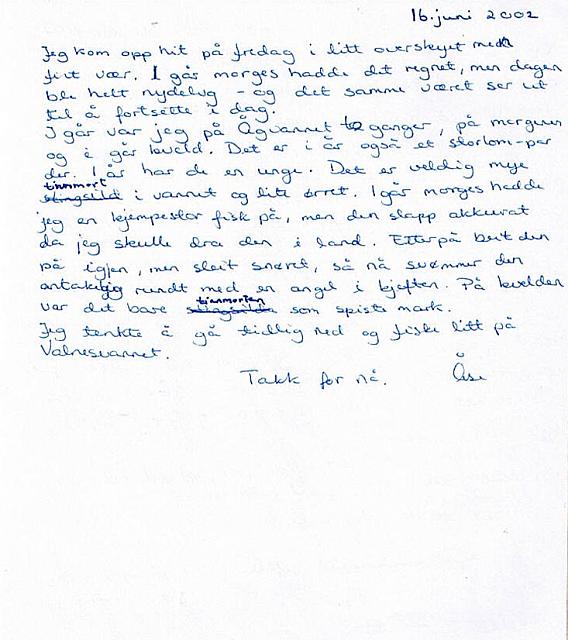 16. juni 2002
Jeg kom opp hit på fredag i litt overskyet med
fint vær. I går morges hadde det regnet, men dagen
ble helt nydelig - og det samme været ser ut
til å fortsette i dag.
I går var jeg på Ågvannet to ganger, på morgenen
og i går kveld. Det er i år også et storlom-par
der. I år har de en unge. Det er veldig mye
tinnmort
stingsild i vannet og lite ørret. I går morges hadde
jeg en kjempestor fisk på, men den slapp akkurat
da jeg skulle dra den i land. Etterpå beit den
på igjen, men sleit snøret, så nå svømmer den
antakelig rundt med en angel i kjeften. På kvelden
tinnmorten
var det bare stingsilda som spiste mark.
Jeg tenkte å gå tidlig ned og fiske litt på
Valnesvannet.
Takk for nå. Åse